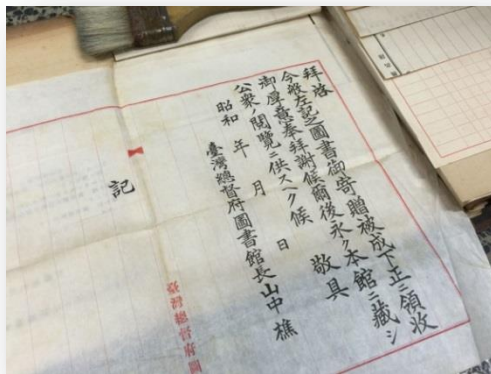 拜啓
今般左記之圖書御寄贈被成下正ニ領收
御厚意奉拜謝候爾後永ク本館ニ藏シ
公衆ノ閱覽ニ供スヘク候 敬具
昭和 年 月 日
臺灣總督府圖書館長山中樵
臺灣總督府圖
記